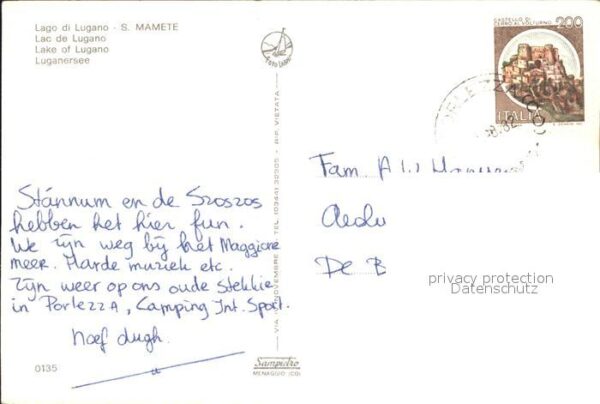 Lago di Lugano - S. MAMETE
Lac de Lugano
Lake of Lugano
Luganersee
CASTELLO DI
CERRO AL VOLTURNO
200
ITALIA
Stánnum en de Szoszos
hebben het hier fun.
We zijn weg bij het Maggiore
meer. Harde muziek etc.
Zijn weer op ons oude stekkie
in Porlezza, Camping Int. Sport.
Fam. A
De B
privacy protection
Datenschutz
0135
Sampietro
MENAGGIO (CO)
VIA IV NOVEMBRE TEL. (0344) 32305 - RIP. VIETATA